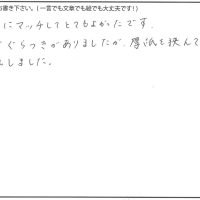 お書き下さい。(一言でも文章でも絵でも大丈夫です!)
にマッチしてとてもよかったです。
ぐらつきがありましたが、厚紙を挟んで
しました。